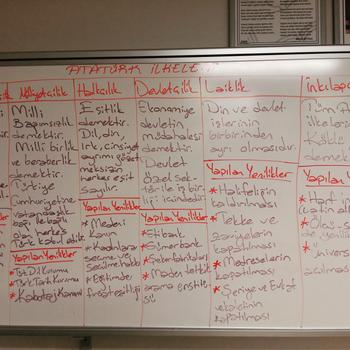 ATATÜRK İLKELE
Milliyetçilik
Milli
Bağımsızlık
demektir.
Milli birlik
ve beraberlik
demektir.
Türkiye
Cumhuriyetine
vatandaşlık
bağı ile bağlı
olan herkes
Türk kabul edilir.
Yapılan Yenilikler
* Türk Dil Kurumu
* Türk Tarih Kurumu
* Kabotaj Kanunu
Halkçılık
Eşitlik
demektir.
Dil, din,
ırk, cinsiyet
ayrımı gözet
meksizin
herkes eşit
sayılır.
Yapılan Yenilikler
* Medeni
Kanun
* Kadınlara
seçme ve
seçilme hakkı
* Eğitimde
fırsat eşitliği
Devletçilik
Ekonomiye
devletin
müdahalesi
demektir.
Devlet
özel sek-
tör ile iş bir
liği içindedir.
Yapılan Yenilikler
* Etibank
* Sümerbank
* Şeker fabrikaları
* Maden tetkik
arama enstitü
sü
Laiklik
Din ve devlet
işlerinin
birbirinden
ayrı olmasıdır.
Yapılan Yenilikler
* Halifeliğin
kaldırılması
* Tekke ve
zaviyelerin
kapatılması
* Medreselerin
kapatılması
* Şeriye ve Evkaf
vekaletinin
kapatılması
İnkılapç
Tüm
ilkeleri
Kökl
demek
Yapılan
* Harf in
* Ölçü
* Ünivers
açılması